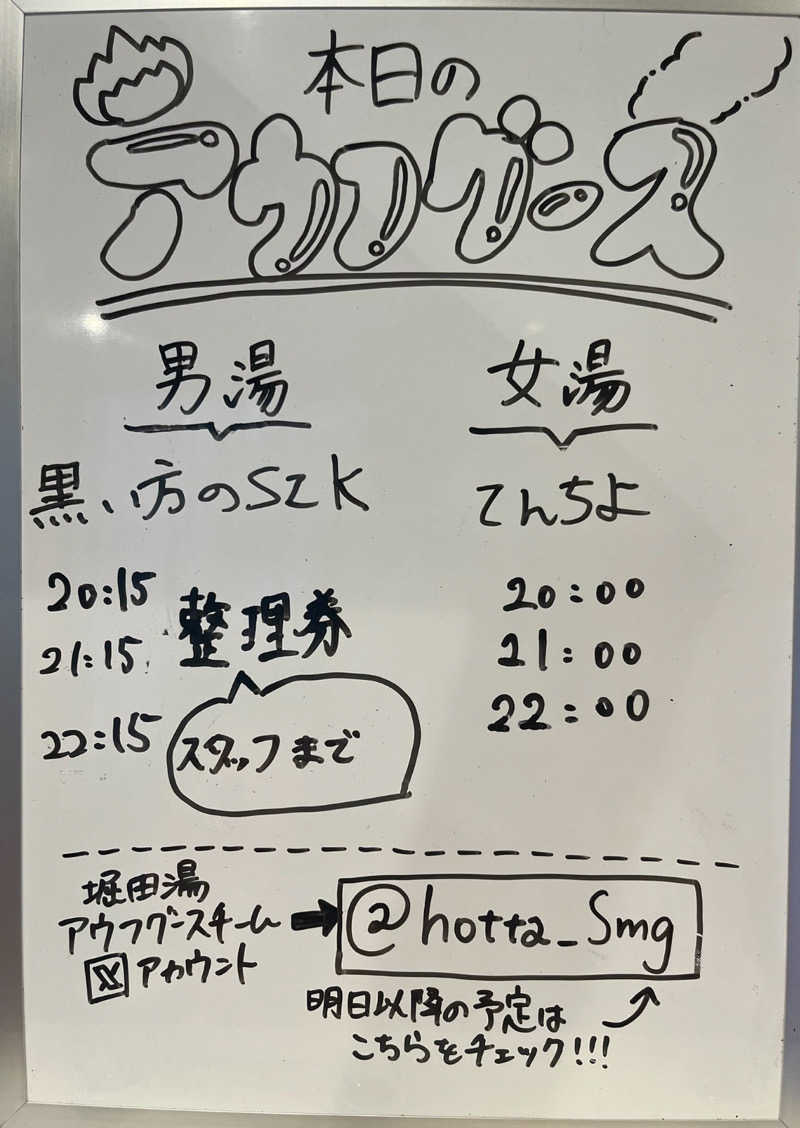 本日の
アウフグース
男湯
女湯
黒い方のSZK
てんちよ
20:15
21:15
22:15
整理券
スタッフまで
20:00
21:00
22:00
堀田湯
アウフグースチーム
X アカウント
@hotta_Smg
明日以降の予定は
こちらをチェック!!!